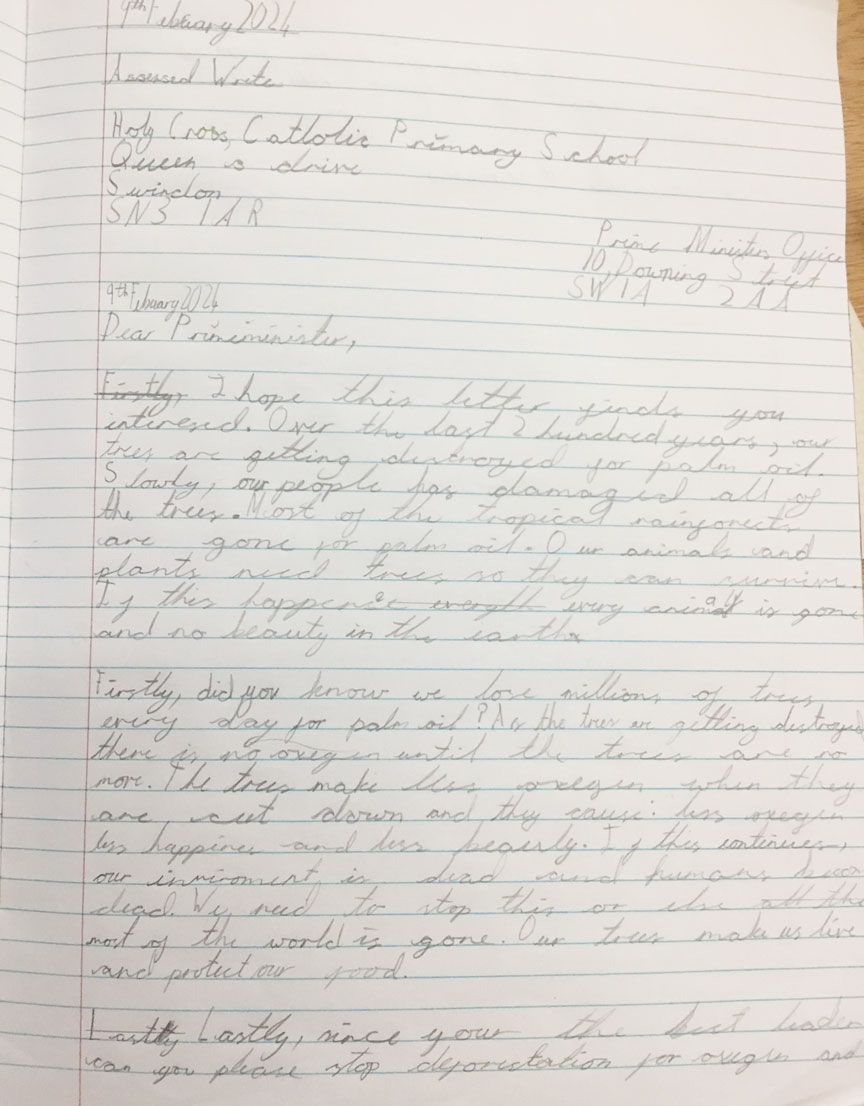 9th February 2024
Assessed Write
Holy Cross, Catholic Primary School
Queen s drive
Swindon
SN3 1AR
Prime Ministers Office
10, Downing Street
SW1A 2AA
9th Febuary 2024
Dear Primeminister,
Firstly, I hope this letter finds you
interesed. Over the last 2 hundred years, our
trees are getting destroyed for palm oil.
Slowly, our people has damaged all of
the trees. Most of the tropical rainforests
are gone for palm oil. Our animals and
plants need trees so they can survive.
If this happens every animal is gone
and no beauty in the earth
Firstly, did you know we lose millions of trees
every day for palm oil? As the trees are getting destroyed
there is no oxegen until the trees are no
more. The trees make less oxegen when they
are cut down and they cause: less oxegen
less happines and less . If this continues,
our inviroment is dead and humans
dead. We need to stop this or else all the
most of the world is gone. Our trees make us live
and protect our food.
Lastly Lastly, since your the best leader
can you please stop deforestation for oxegen and